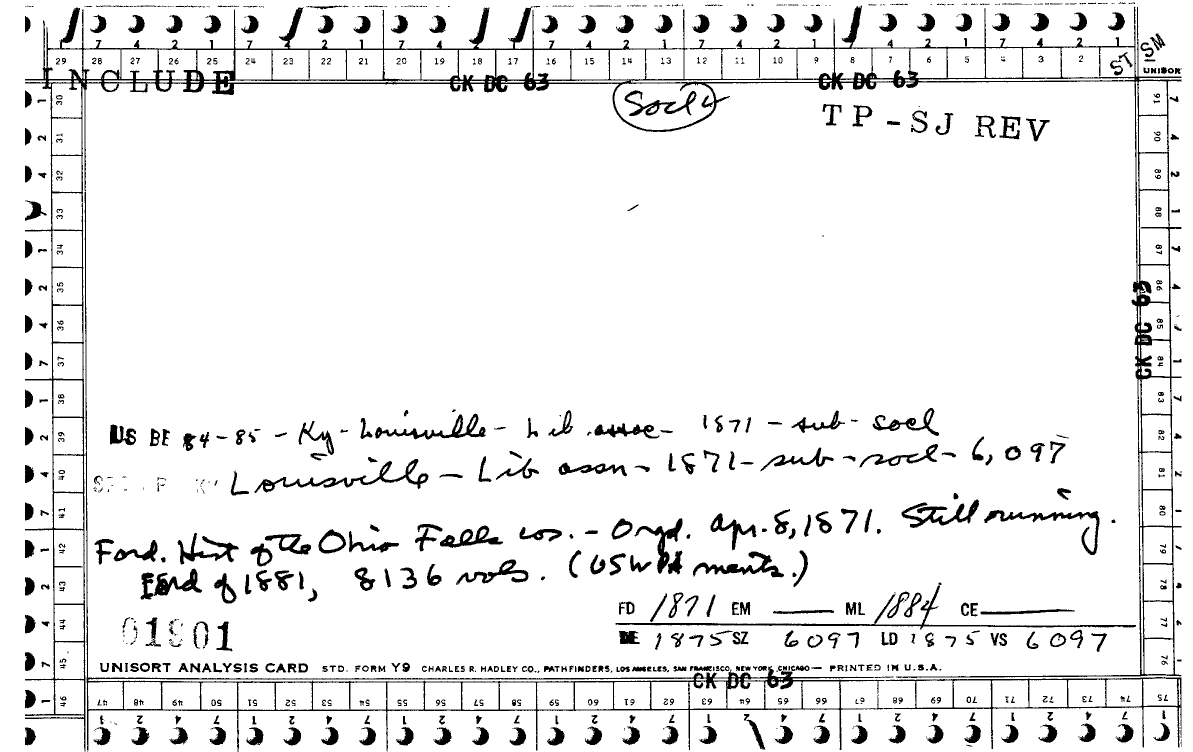 7 4 2 1 7 4 2 1 7 4 2 1 7 4 2 1 7 4 2 1 7 4 2 1 7 4 2 1
29 28 27 26 25 24 23 22 21 20 19 18 17 16 15 14 13 12 11 10 9 8 7 6 5 4 3 2 ST SM
UNISOR
INCLUDE CK DC 63 CK DC 63
Socl
TP-SJ REV
1 30 91 7
2 31 90 4
4 32 89 2
7 33 88 1
1 34 87 7
2 35 86 4
4 36 85
7 37 84
CK DC 63
1 38 83 7
2 39 82 4
4 40 81 2
7 41 80 1
1 42 79 7
2 43 78 4
4 44 77
7 45 76
1 46
US BE 84-85 - Ky - Louisville - Lib assoc - 1871 - sub - socl
KY Louisville - Lib assn - 1871 - sub - socl - 6,097
Ford. Hist of the Ohio Falls cos. - Orgd. Apr. 8, 1871. Still running.
End of 1881, 8136 vols. (USWPA ments.)
FD 1871 EM ML 1884 CE
01901
DE 1875 SZ 6097 LD 1875 VS 6097
UNISORT ANALYSIS CARD STD. FORM Y9 CHARLES R. HADLEY CO., PATHFINDERS, LOS ANGELES, SAN FRANCISCO, NEW YORK, CHICAGO — PRINTED IN U.S.A.
CK DC 63
47 48 49 50 51 52 53 54 55 56 57 58 59 60 61 62 63 64 65 66 67 68 69 70 71 72 73 74 75
1 2 4 7 1 2 4 7 1 2 4 7 1 2 4 7 1 2 4 7 1 2 4 7 1 2 4 7